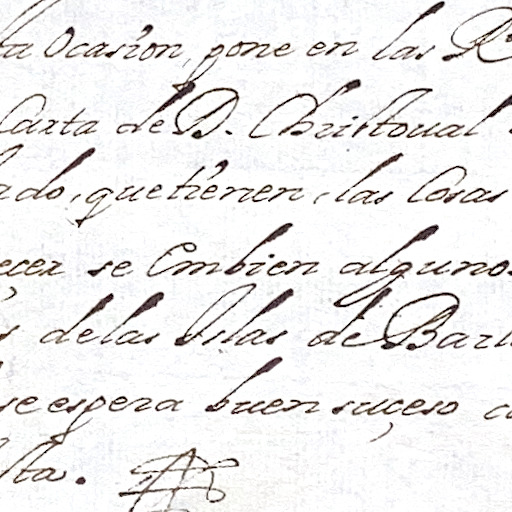 ta Ocasion, pone en las R
Carta de D. Christoual
ado, que tienen, las Cosas
ecer se Embien algunos
s de las Islas de Barl
se espera buen suçeso c
sta.